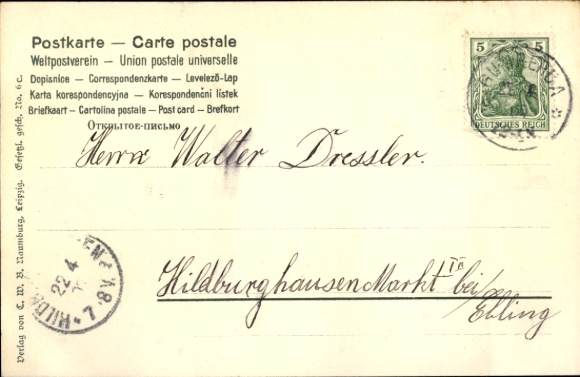 Postkarte — Carte postale
Weltpostverein — Union postale universelle
Dopisnice — Correspondenzkarte — Levelező-Lap
Karta korespondencyjna — Korespondenční lístek
Briefkaart — Cartolina postale — Post card — Brefkort
Открытое-письмо
5 5
DEUTSCHES REICH
Herrn Walter Dressler.
Hildburghausen Markt bei
Ebling
22 4
7-8
Verlag von C. W. B. Naumburg, Leipzig. Gesetzl. gesch. No. 6 c.